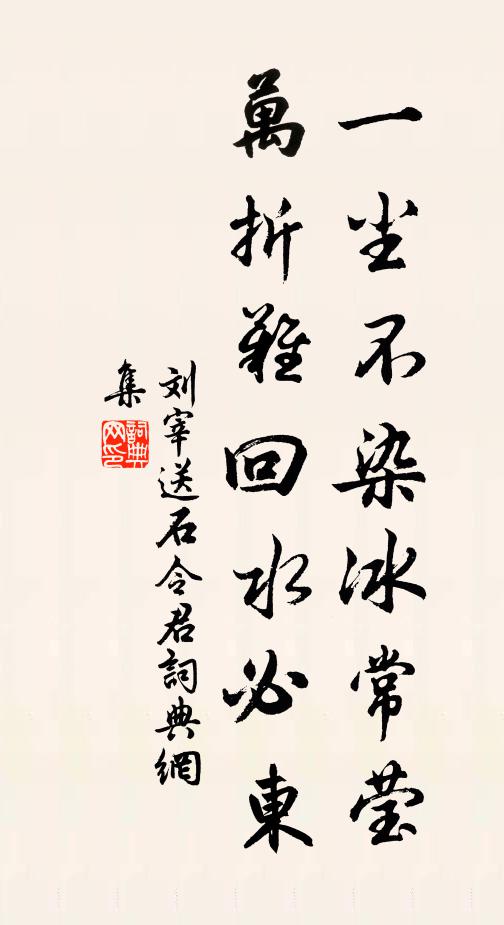 一尘不染冰常莹
萬折難回水必東
刘宰送石令君詞典網
集
詞典网印